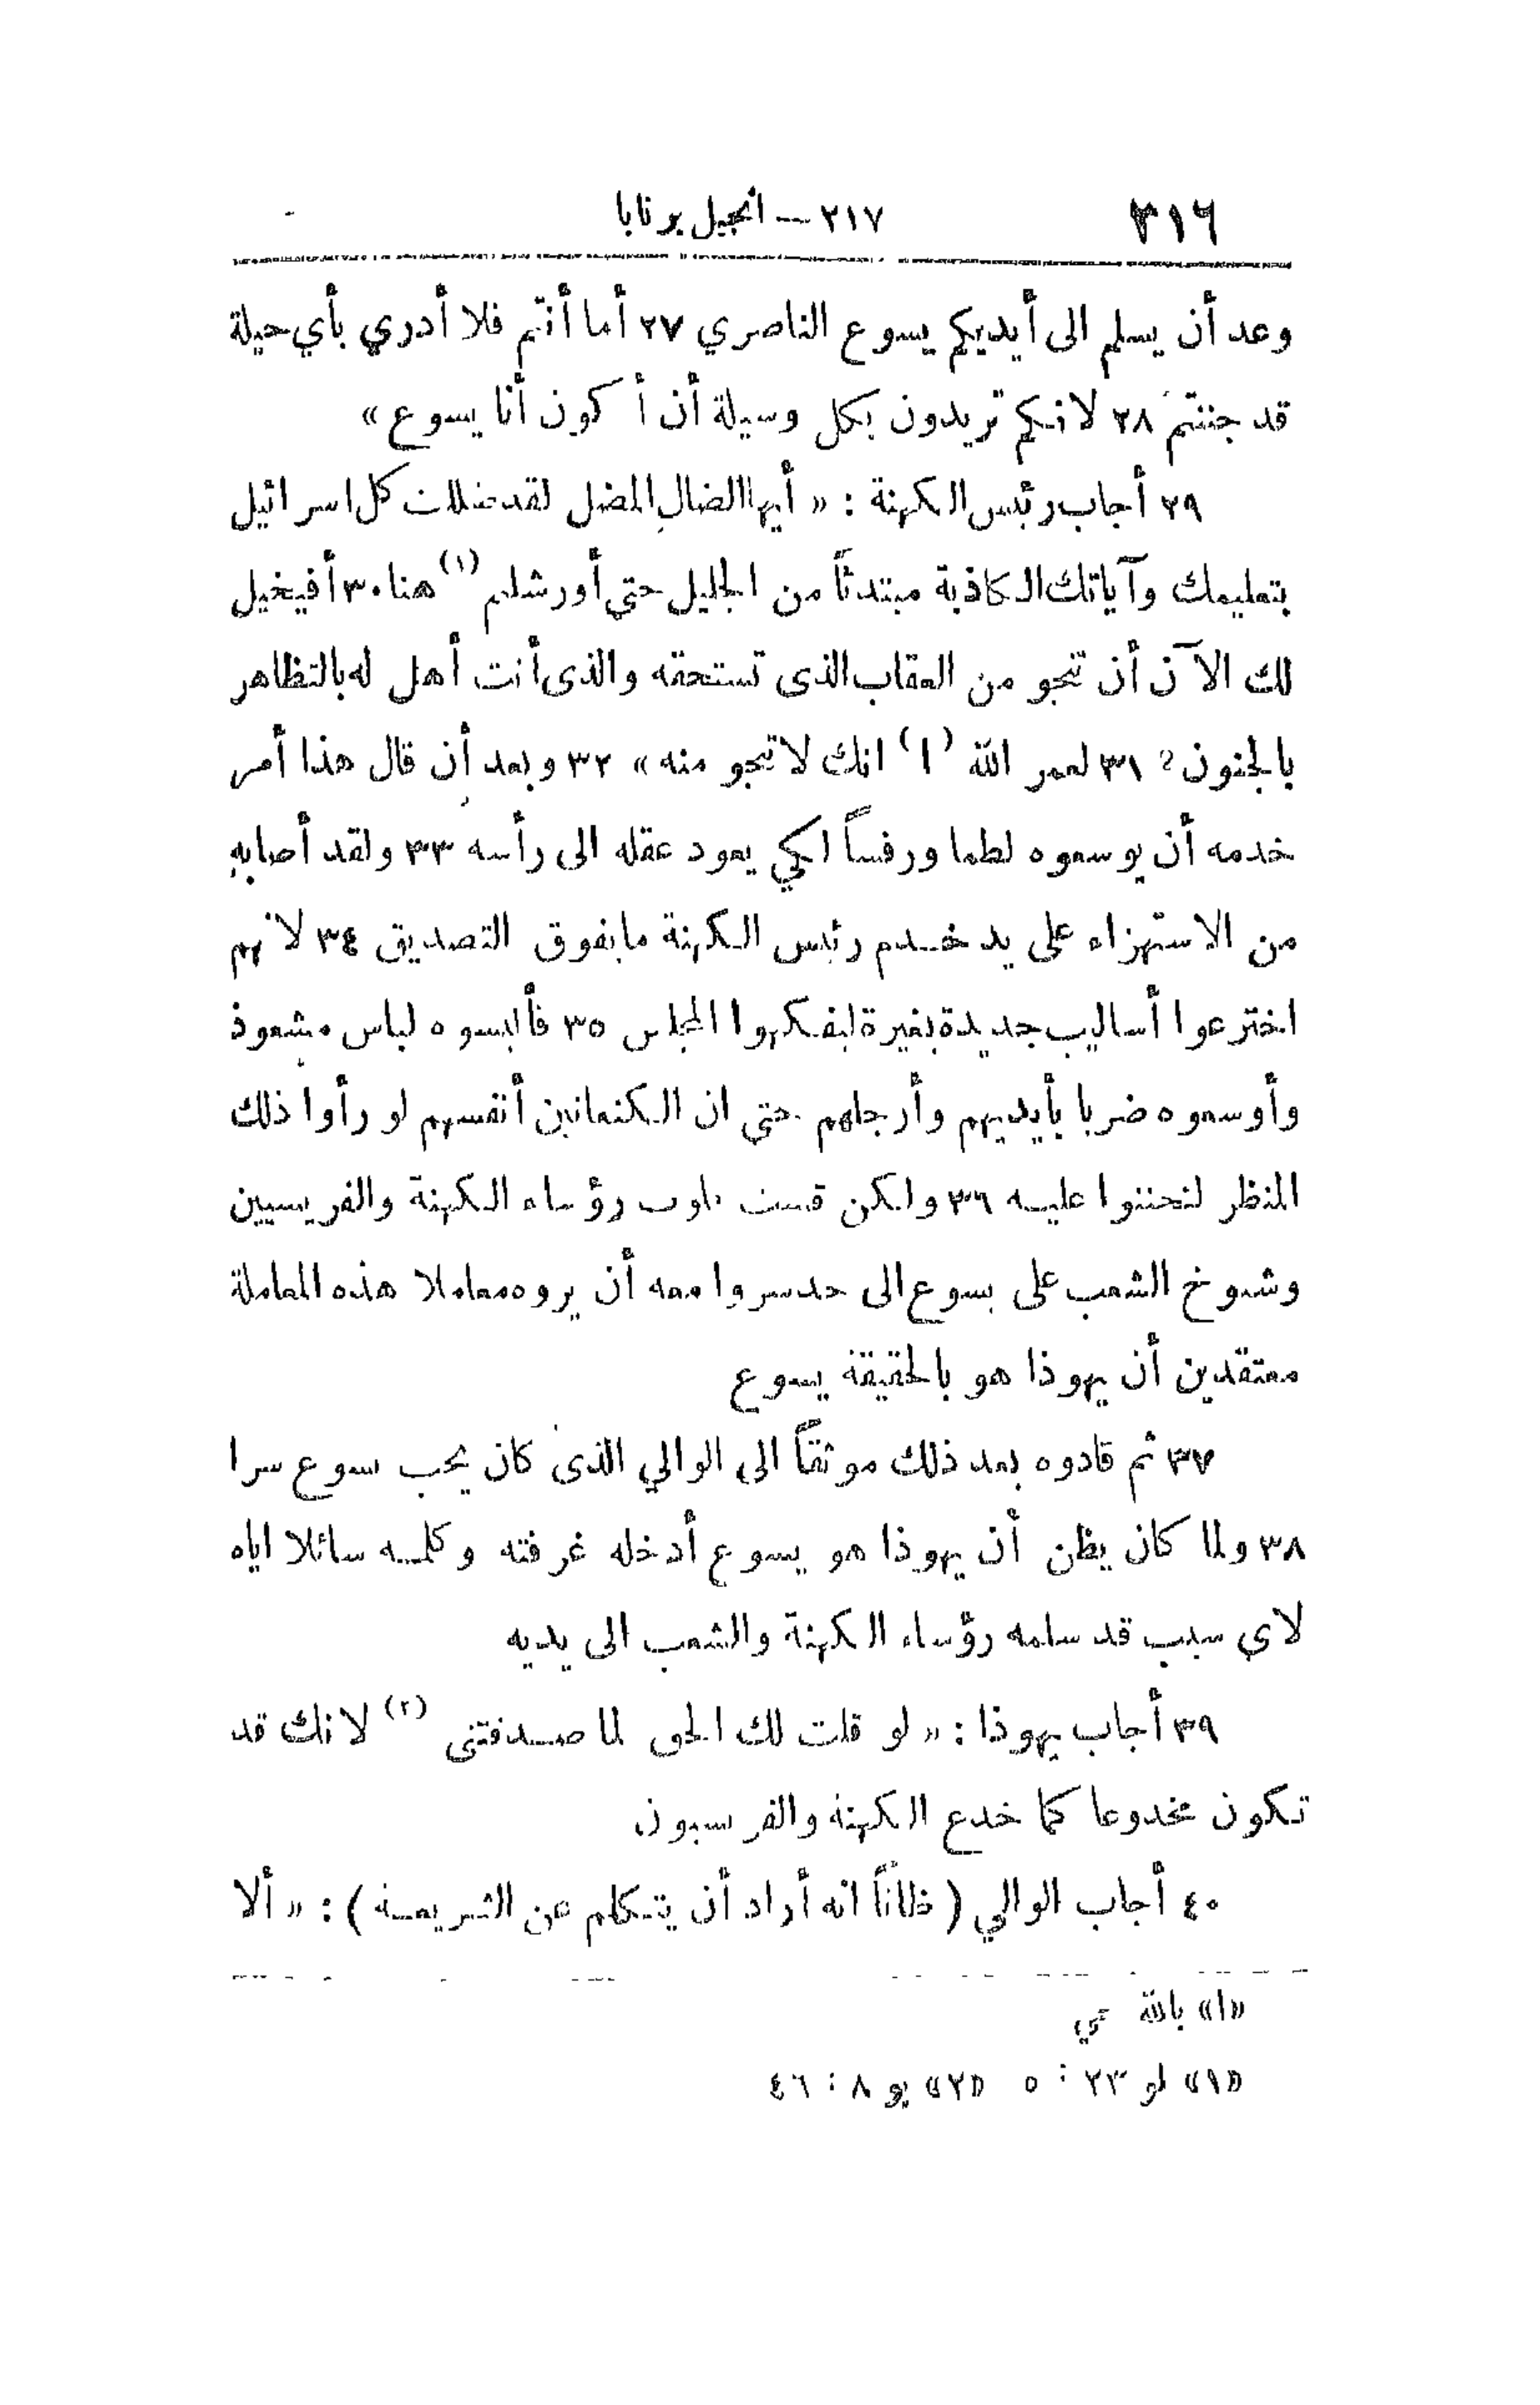 ٣١٦ ٢١٧ — انجيل برنابا
وعد أن يسلم الى أيديكم يسوع الناصري ٢٧ أما أنتم فلا أدري بأي حيلة
قد جننتم ٢٨ لانكم تريدون بكل وسيلة أن أكون أنا يسوع »
٢٩ أجاب رئيس الكهنة : « أيها الضال المضل لقد ضللت كل اسرائيل
بتعليمك وآياتك الكاذبة مبتدئاً من الجليل حتى أورشليم (١) هنا ٣٠ أفيخيل
لك الآن أن تنجو من العقاب الذى تستحقه والذى أنت أهل له بالتظاهر
بالجنون ؟ ٣١ لعمر الله (ا) انك لا تنجو منه » ٣٢ وبعد أن قال هذا أمر
خدمه أن يوسعوه لطما ورفساً لكي يعود عقله الى رأسه ٣٣ ولقد أصابه
من الاستهزاء على يد خدم رئيس الكهنة ما يفوق التصديق ٣٤ لانهم
اخترعوا أساليب جديدة بغيرة ليفكهوا المجلس ٣٥ فألبسوه لباس مشعوذ
وأوسعوه ضربا بأيديهم وأرجلهم حتى ان الكنعانيين أنفسهم لو رأوا ذلك
المنظر لتحننوا عليه ٣٦ ولكن قست قلوب رؤساء الكهنة والفريسيين
وشيوخ الشعب على يسوع الى حد سروا معه أن يروه معاملا هذه المعاملة
معتقدين أن يهوذا هو بالحقيقة يسوع
٣٧ ثم قادوه بعد ذلك موثقاً الى الوالي الذى كان يحب يسوع سرا
٣٨ ولما كان يظن أن يهوذا هو يسوع أدخله غرفته وكلمه سائلا اياه
لاي سبب قد سلمه رؤساء الكهنة والشعب الى يديه
٣٩ أجاب يهوذا : « لو قلت لك الحق لما صدقتنى (٢) لانك قد
تكون مخدوعا كما خدع الكهنة والفريسيون
٤٠ أجاب الوالي ( ظاناً انه أراد أن يتكلم عن الشريعة ) : « ألا
«ا» بالله حي
«١» لو ٢٣ : ٥ «٢» يو ٨ : ٤٦